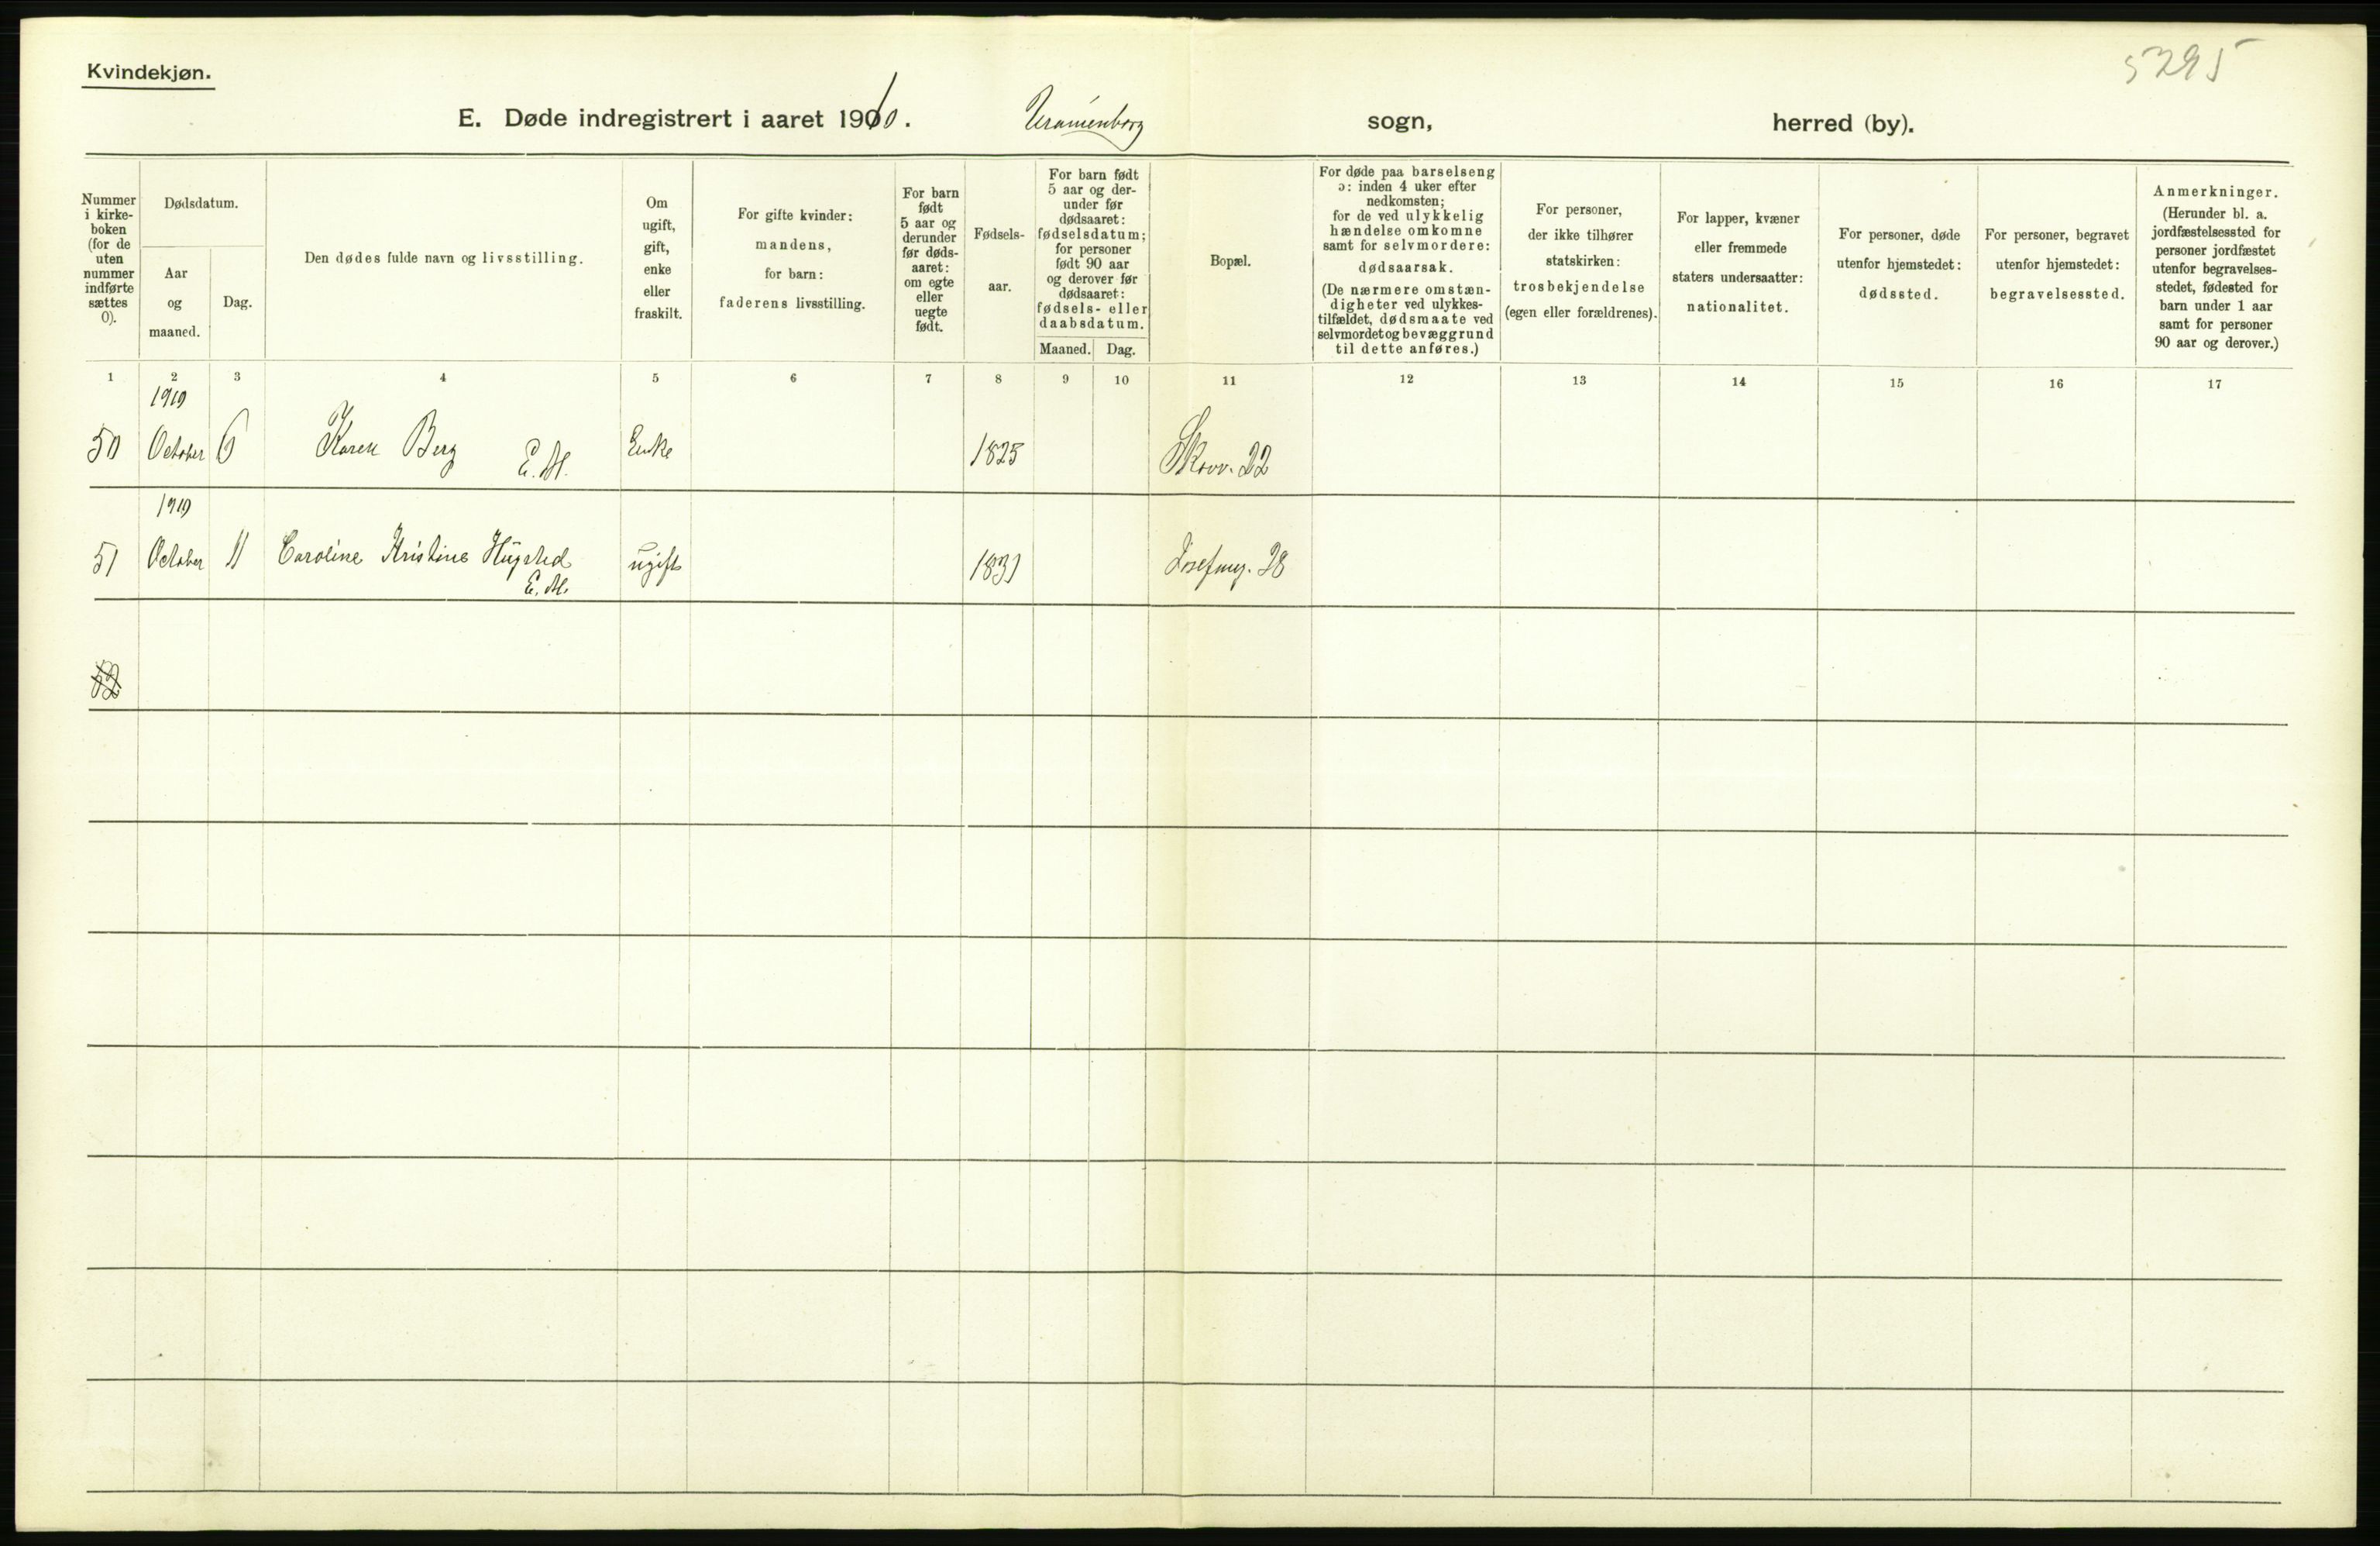 Kvindekjøn.
5295
E. Døde indregistrert i aaret 1910. Uranienborg sogn, herred (by).
Nummer
i kirke-
boken
(for de
uten
nummer
indførte
sættes
0).
Dødsdatum.
Aar
og
maaned.
Dag.
Den dødes fulde navn og livsstilling.
Om
ugift,
gift,
enke
eller
fraskilt.
For gifte kvinder:
mandens,
for barn:
faderens livsstilling.
For barn
født
5 aar og
derunder
før døds-
aaret:
om egte
eller
uegte
født.
Fødsels-
aar.
For barn født
5 aar og der-
under før
dødsaaret:
fødselsdatum;
for personer
født 90 aar
og derover før
dødsaaret:
fødsels- eller
daabsdatum.
Maaned. Dag.
Bopæl.
For døde paa barselseng
ɔ: inden 4 uker efter
nedkomsten;
for de ved ulykkelig
hændelse omkomne
samt for selvmordere:
dødsaarsak.
(De nærmere omstæn-
digheter ved ulykkes-
tilfældet, dødsmaate ved
selvmordet og bevæggrund
til dette anføres.)
For personer,
der ikke tilhører
statskirken:
trosbekjendelse
(egen eller forældrenes).
For lapper, kvæner
eller fremmede
staters undersaatter:
nationalitet.
For personer, døde
utenfor hjemstedet:
dødssted.
For personer, begravet
utenfor hjemstedet:
begravelsessted.
Anmerkninger.
(Herunder bl. a.
jordfæstelsessted for
personer jordfæstet
utenfor begravelses-
stedet, fødested for
barn under 1 aar
samt for personer
90 aar og derover.)
1 2 3 4 5 6 7 8 9 10 11 12 13 14 15 16 17
1910
50 October 6 Karen Berg Enke 1825 Skovv. 22
E. M.
1910
51 October 11 Caroline Kristine Hugsted ugift 1831 Josefinesg. 28
E. M.
52